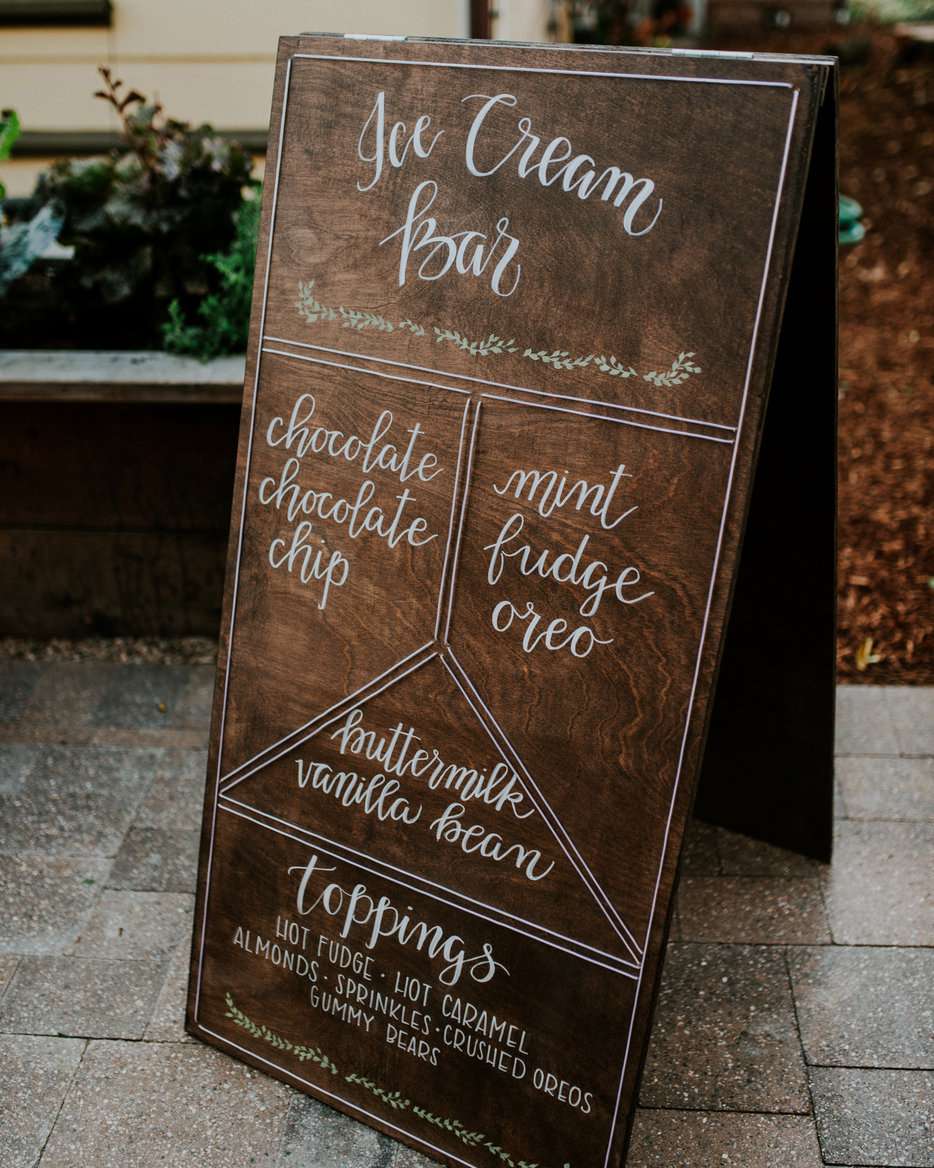 Ice Cream
Bar
chocolate
chocolate
chip
mint
fudge
oreo
buttermilk
vanilla bean
toppings
HOT FUDGE · HOT CARAMEL
ALMONDS · SPRINKLES · CRUSHED OREOS
GUMMY BEARS